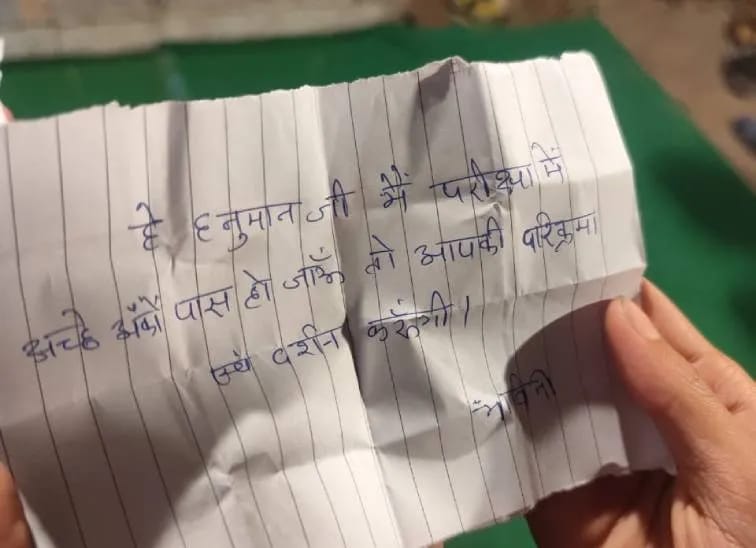 हे हनुमान जी मैं परीक्षा में
अच्छे अंकों पास हो जाऊँ तो आपकी परिक्रमा
एवं दर्शन करूँगी।